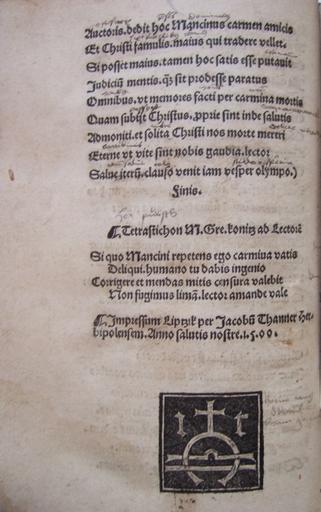 Auctoris. dedit hoc Mancinus carmen amicis
Et Christi famulis. maius qui tradere vellet.
Si posset maius. tamen hoc satis esse putauit
Judiciū mentis. qȝ sit prodesse paratus
Omnibus. vt memores facti per carmina mortis
Quam subijt Christus. ꝓprie sint inde salutis
Admoniti. et solita Christi nos morte mereri
Eterne vt vite sint nobis gaudia. lector
Salue iterū. clauso venit iam vesper olympo.)
Finis.
¶ Tetrastichon M. Gre. konig ad Lectorē
Si quo Mancini repetens ego carmina vatis
Deliqui. humano tu dabis ingenio
Corrigere et mendas mitis censura valebit
Non fugimus limā. lector amande vale
¶ Impressum Liptzk per Jacobū Thanner Her-
bipolensem. Anno salutis nostre. 1.5.00.
I T